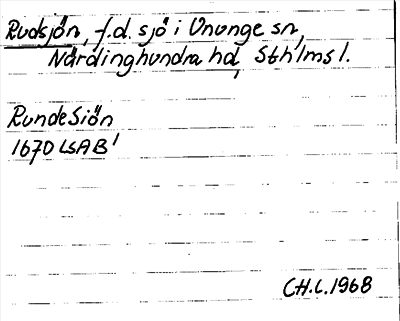 Rudsjön, f.d. sjö i Ununge sn,
Närdinghundra hd, Sthlms l.
RundeSiön
1670 LSAB¹
CH.L.1968